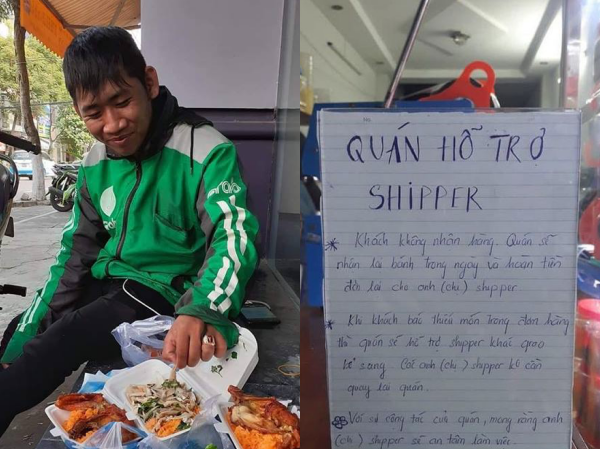 Grab
QUÁN HỖ TRỢ
SHIPPER
* Khách không nhận hàng. Quán sẽ
nhận lại bánh trong ngày và hoàn tiền
đơn lại cho anh (chị) shipper
* Khi khách báo thiếu món trong đơn hàng
thì quán sẽ hỗ trợ shipper khác giao
sang. Các anh (chị) shipper kẻ cần
quay lại quán.
Với sự cộng tác của quán, mong rằng anh
(chị) shipper sẽ an tâm làm việc.